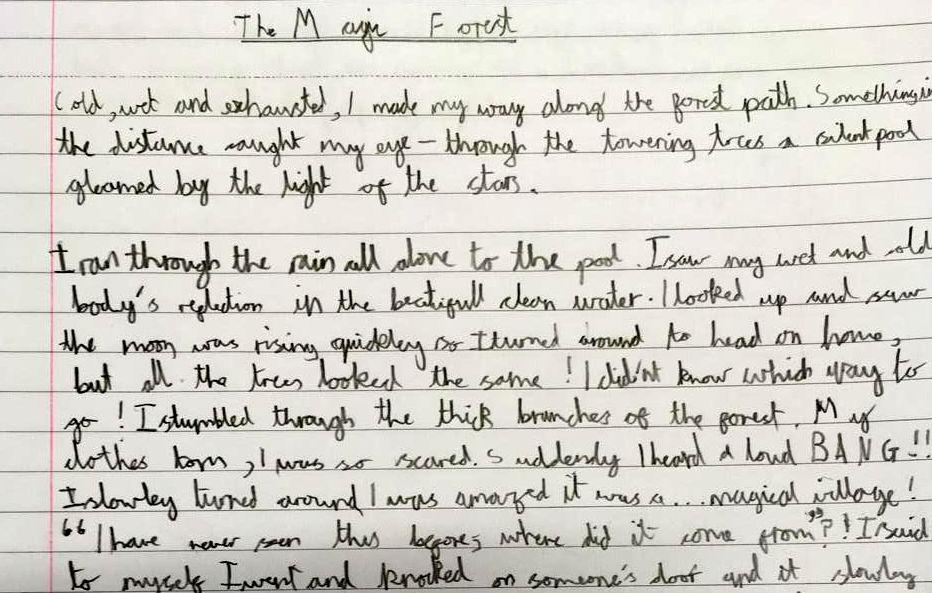 The Magic Forest
Cold, wet and exhausted, I made my way along the forest path. Something in
the distance caught my eye – through the towering trees a silent pool
gleamed by the light of the stars.
I ran through the rain all alone to the pool. I saw my wet and cold
body's reflection in the beatifull clean water. I looked up and saw
the moon was rising quickley so I turned around to head on home,
but all the trees looked the same! I did'nt know which way to
go! I stumbled through the thick branches of the forest. My
clothes torn, I was so scared. Suddendy I heard a loud BANG!!
I slowley turned around I was amazed it was a... magical village!
“I have never seen this before, where did it come from”?! I said
to myself I went and knocked on someone's door and it slowley